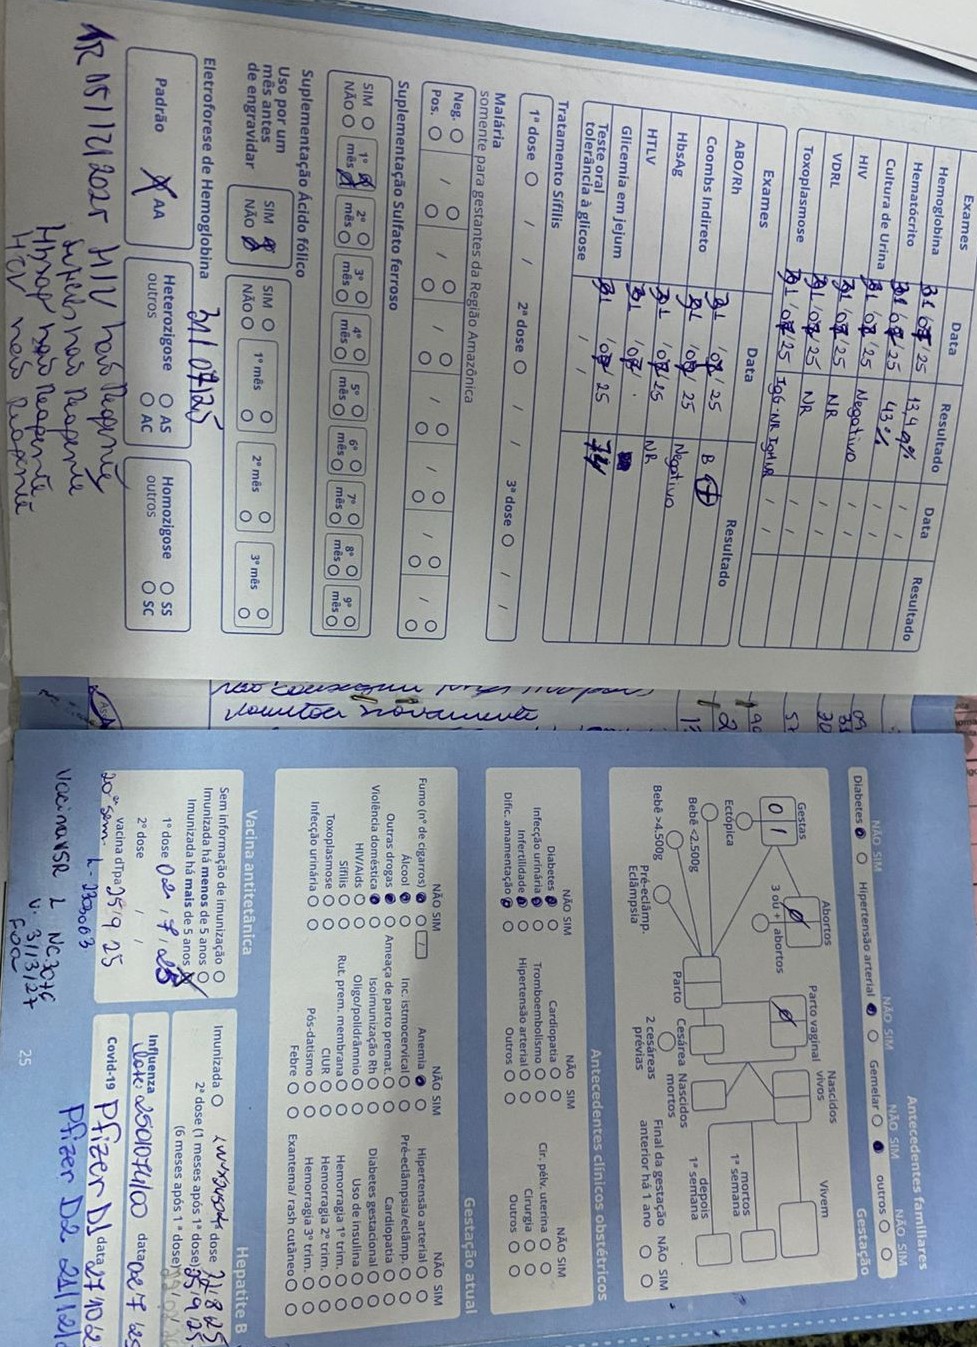 Exames Data Resultado Data Resultado
Hemoglobina 31/07/25 13,4 g% / /
Hematócrito 31/07/25 43% / /
Cultura de Urina 31/07/25 Negativo / /
HIV 31/07/25 NR / /
VDRL 31/07/25 NR / /
Toxoplasmose 31/07/25 IgG:NR IgM:NR / /
Exames Data Resultado
ABO/Rh 31/07/25 B +
Coombs Indireto 31/07/25 Negativo
HbsAg 31/07/25 NR
HTLV 31/07/
Glicemia em jejum 31/07/25 74
Teste oral tolerância à glicose / /
Tratamento Sífilis
1ª dose / / 2ª dose / / 3ª dose / /
Malária
somente para gestantes da Região Amazônica
Neg. / / / / / /
Pos.
Suplementação Sulfato ferroso
SIM
NÃO
1º mês 2º mês 3º mês 4º mês 5º mês 6º mês 7º mês 8º mês 9º mês
Suplementação Ácido fólico
Uso por um
mês antes
de engravidar
SIM
NÃO
SIM
NÃO
1º mês 2º mês 3º mês
Eletroforese de Hemoglobina 31/07/25
Padrão X AA
Heterozigose AS
outros AC
Homozigose SS
outros SC
TR 15/12/2025 HIV não Reagente
Sífilis não Reagente
HbsAg não Reagente
HCV não Reagente
não
novamente
Antecedentes familiares
NÃO SIM NÃO SIM NÃO SIM NÃO SIM
Diabetes Hipertensão arterial Gemelar outros
Gestação
Gestas 0 1
Abortos
Parto vaginal
Nascidos
vivos
Vivem
Ectópica
3 ou + abortos
mortos
1ª semana
Bebê <2.500g
Parto
Cesárea
Nascidos
mortos
depois
1ª semana
Bebê >4.500g
Pré-eclâmp.
Eclâmpsia
2 cesáreas
prévias
Final da gestação
anterior há 1 ano
NÃO SIM
Antecedentes clínicos obstétricos
NÃO SIM NÃO SIM NÃO SIM
Diabetes Cardiopatia Cir. pélv. uterina
Infecção urinária Tromboembolismo Cirurgia
Infertilidade Hipertensão arterial Outros
Dific. amamentação Outros
Gestação atual
NÃO SIM NÃO SIM NÃO SIM
Fumo (nº de cigarros) Anemia Hipertensão arterial
Álcool Inc. istmocervical Pré-eclâmpsia/eclâmp.
Outras drogas Ameaça de parto premat. Cardiopatia
Violência doméstica Isoimunização Rh Diabetes gestacional
HIV/Aids Oligo/polidrâmnio Uso de insulina
Sífilis Rut. prem. membrana Hemorragia 1º trim.
Toxoplasmose CIUR Hemorragia 2º trim.
Infecção urinária Pós-datismo Hemorragia 3º trim.
Febre Exantema/ rash cutâneo
Vacina antitetânica
Sem informação de imunização
Imunizada há menos de 5 anos
Imunizada há mais de 5 anos X
1ª dose 02/7/25
2ª dose / /
vacina dTpa 25/9/25
20ª sem.
Hepatite B
Imunizada dose 22/8/25
2ª dose (1 meses após 1ª dose) 25/9/25
(6 meses após 1ª dose)
Influenza data 02 7 25
Covid-19 Pfizer D1 data 27/10/2
Pfizer D2 21/12/
Vacina VSR L NC3076
V. 31/3/27
25